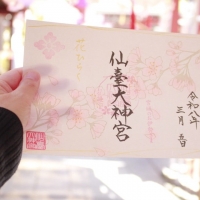 仙臺大神宮
令和八年
三月 一日